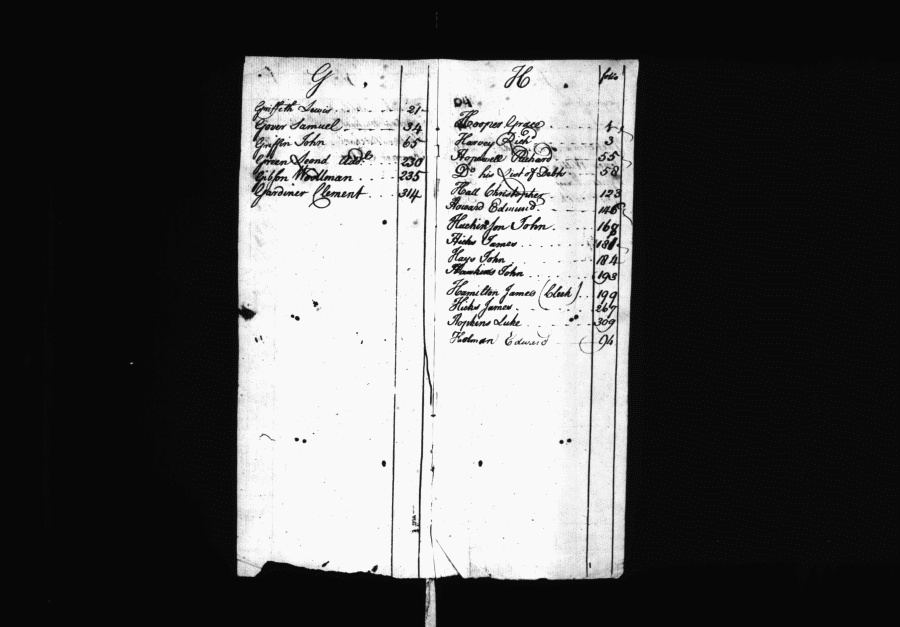 G
Griffith Lewis 21
Gover Samuel 34
Griffin John 65
Green Leond 230
Gibson Woollman 235
Gardiner Clement 314
H folio
Hooper Grace 1
Harvey Rich 3
Hopewell Richard 55
Do his List of Debts 58
Hall Christopher 123
Howard Edmund 146
Hutchinson John 168
Hicks James 181
Hays John 184
Hawkins John 193
Hamilton James (Clerk) 199
Hicks James 267
Hopkins Luke 309
Holman Edward 94